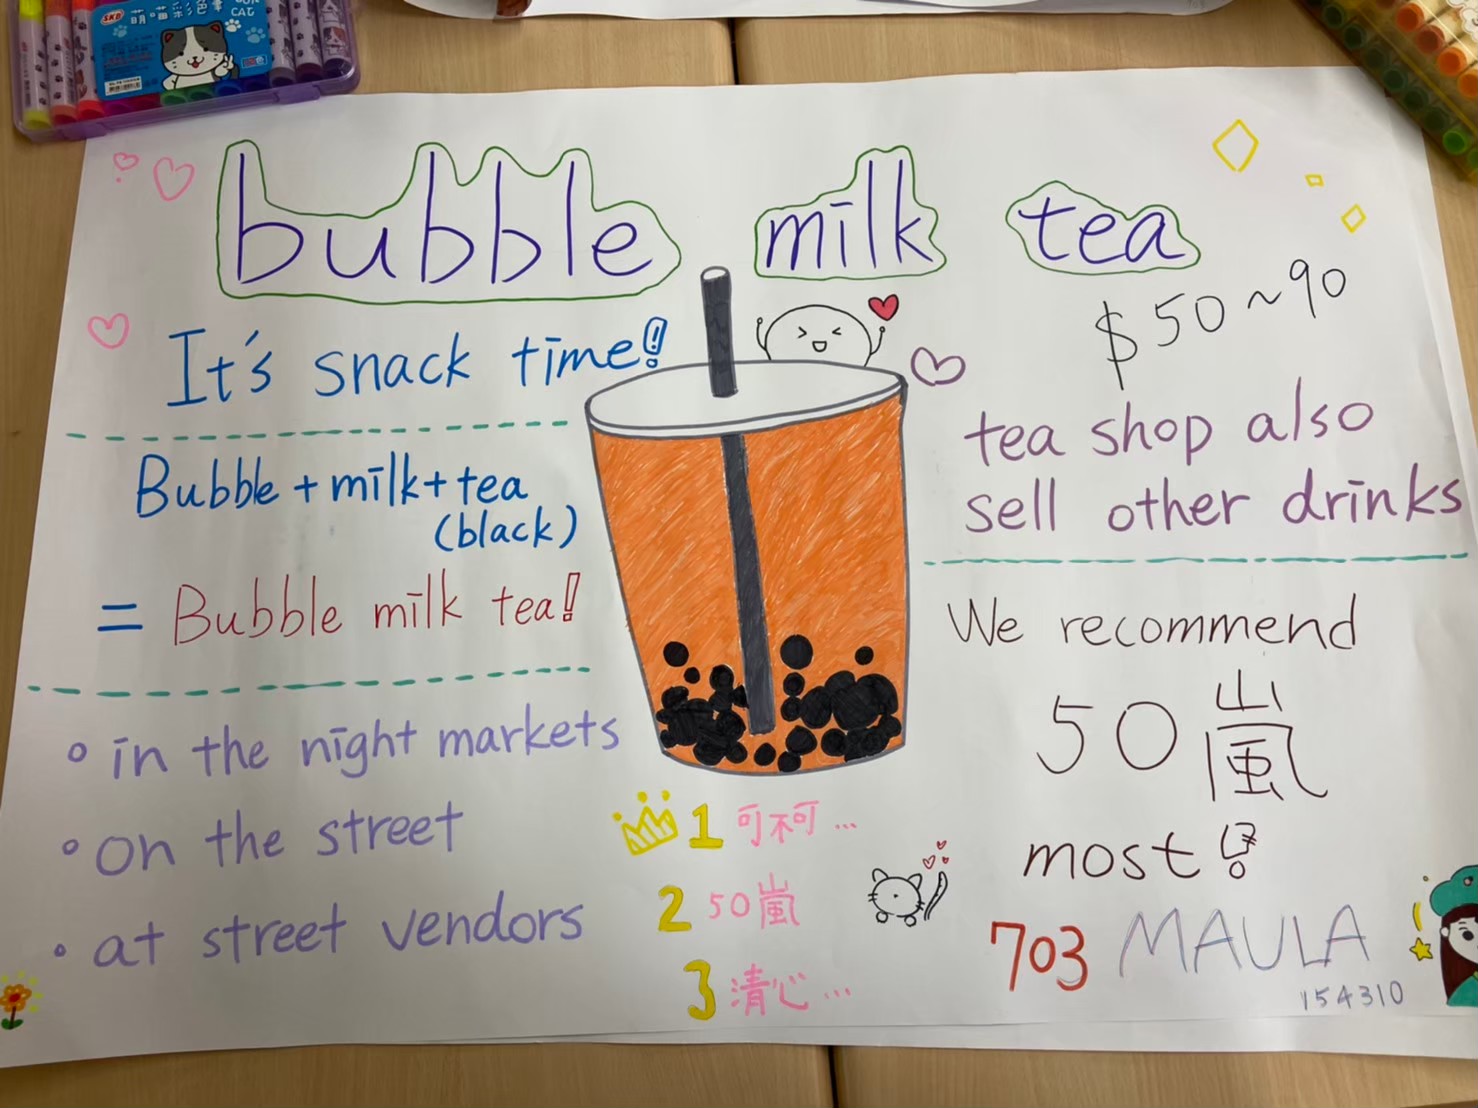 萌喵彩色筆
SKB
CAT
bubble milk tea
$50~90
It's snack time!
Bubble + milk + tea
(black)
= Bubble milk tea!
in the night markets
on the street
at street vendors
tea shop also
sell other drinks
We recommend
50嵐
most!
1 可不可...
2 50嵐
3 清心...
703 MAULA
154310